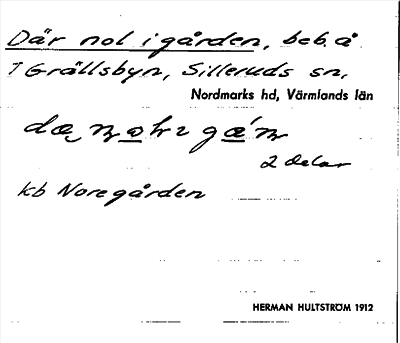 Där nol i gården, beb. å
T Grällsbyn, Silleruds sn,
Nordmarks hd, Värmlands län
2 delar
kb Noregården
HERMAN HULTSTRÖM 1912